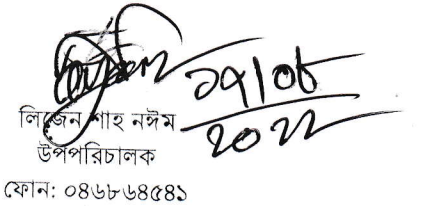 ১৭/০৮
২০২২
লিজেন শাহ নঈম
উপপরিচালক
ফোন: ০৪৬৮৬৪৫৪১